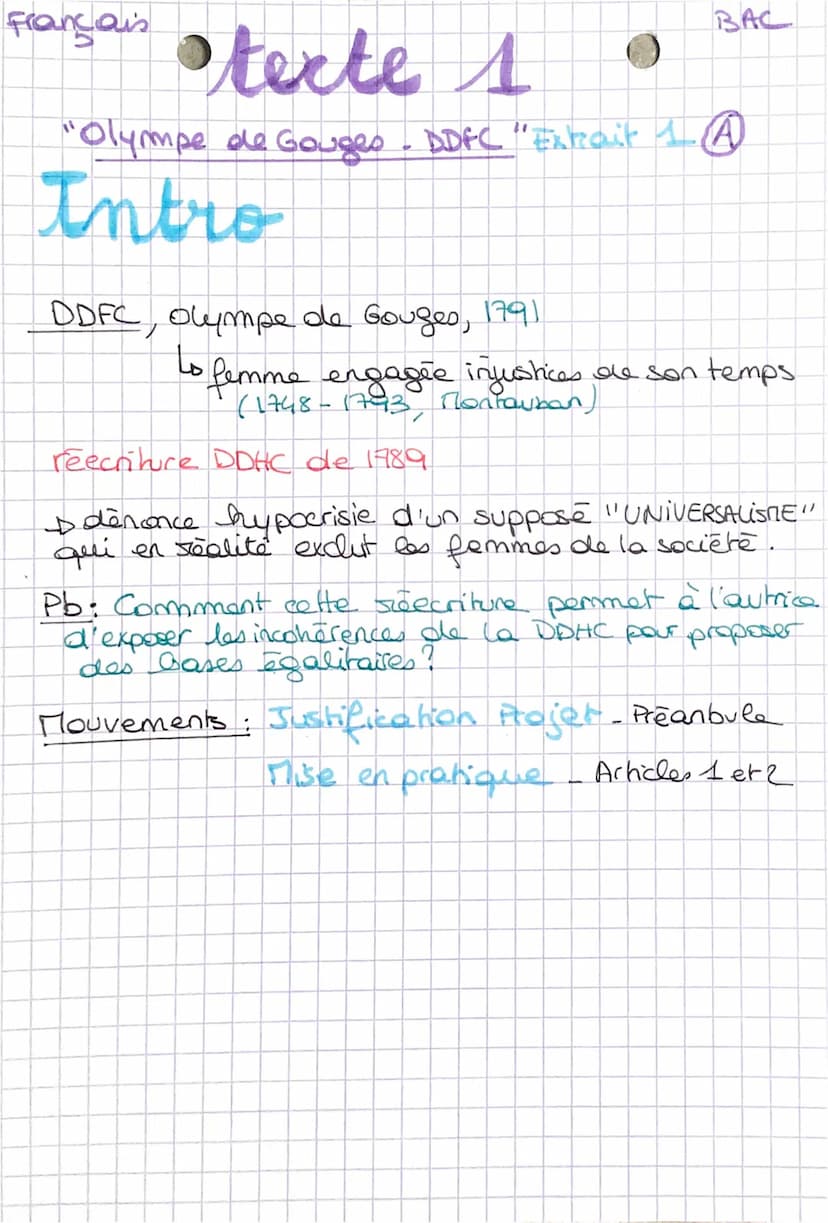 Français
BAC
texte 1
"Olympe de Gouges - DDFC" Extrait 1 A
Intro
DDFC, Olympe de Gouges, 1791
↳ femme engagée injustices de son temps
(1748 - 1793, Montauban)
réecriture DDHC de 1789
→ dénonce hypocrisie d'un supposé "UNIVERSALISME"
qui en réalité exclut les femmes de la société.
Pb : Comment cette réécriture permet à l'autrice
d'exposer les incohérences de la DDHC pour proposer
des bases égalitaires ?
Mouvements : Justification Projet - Préanbule
Mise en pratique - Articles 1 et 2